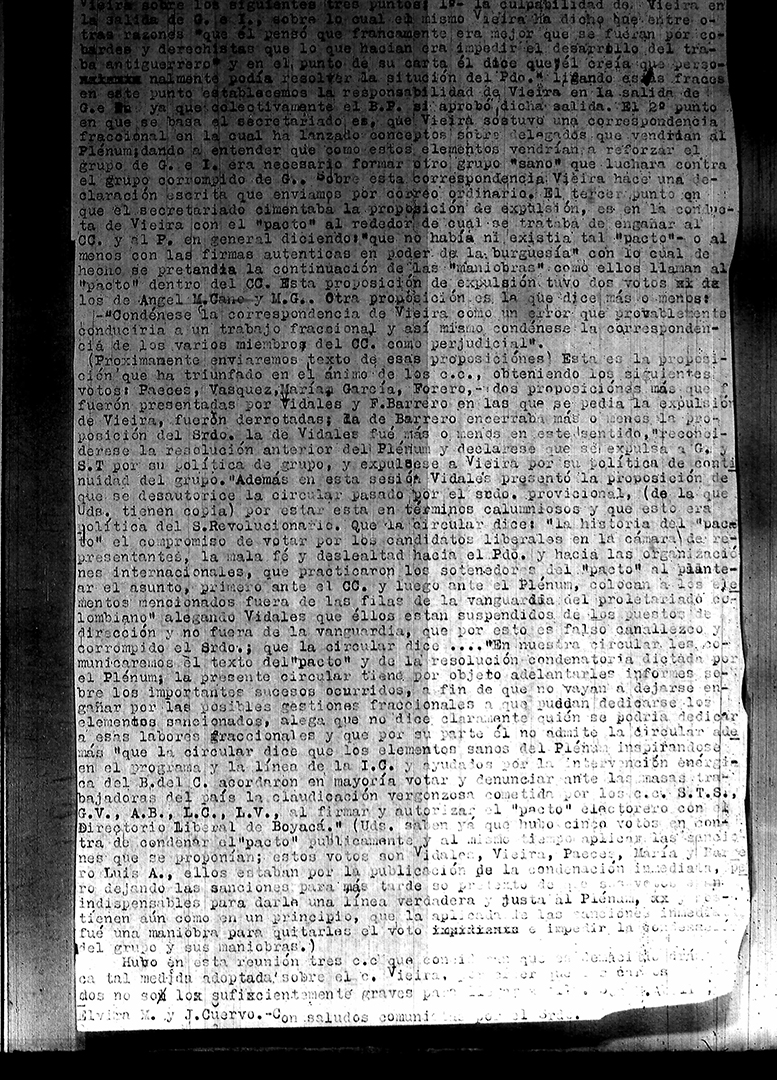 Vieira sobre los siguientes tres puntos: 1º- la culpabilidad de Vieira en
la salida de G. e I., sobre lo cual el mismo Vieira ha dicho que entre o-
tras razones "que él pensó que francamente era mejor que se fueran por co-
bardes y derechistas que lo que hacian era impedir el desarrollo del tra-
ba antiguerrero" y en el punto de su carta él dice que, él creía que perso-
nalmente podía resolver la situción del Pdo." ligando esas fraces
en este punto establecemos la responsabilidad de Vieira en la salida de
G.e ya que colectivamente el B.P. si aprobó dicha salida. El 2º punto
en que se basa el secretariado es, que Vieira sostuvo una correspondencia
fraccional en la cual ha lanzado conceptos sobre delegados que vendrian al
Plénum; dando a entender que como estos elementos vendrían a reforzar el
grupo de G. e I. era necesario formar otro grupo "sano" que luchara contra
el grupo corrompido de G.. Sobre esta correspondencia Vieira hace una de-
claración escrita que enviamos por correo ordinario. El tercer punto en
que el secretariado cimentaba la proposición de expulsión, es en la conduc-
ta de Vieira con el "pacto" al rededor de cual se trataba de engañar al
CC. y al P. en general diciendo: "que no había ni existia tal "pacto"- o al
menos con las firmas autenticas en poder de la burguesía" con lo cual de
hecho se pretendia la continuación de las "maniobras" como ellos llaman al
"pacto" dentro del CC. Esta proposición de expulsión tuvo dos votos
los de Angel M.Cano y M.G.. Otra proposición es la que dice más o menos:
-"Condénese la correspondencia de Vieira como un error que provablemente
conduciria a un trabajo fraccional y así mismo condénese la corresponden-
ciá de los varios miembros del CC. como perjudicial".
(Proximamente enviaremos texto de esas proposiciónes) Esta es la proposi-
ción que ha triunfado en el ánimo de los c.c., obteniendo los siguientes
votos: Paeces, Vasquez, María, García, Forero,- dos proposiciónes más que f
fuerón presentadas por Vidales y F.Barrero en las que se pedia la expulsión
de Vieira, fuerón derrotadas; la de Barrero encerraba más o menos la pro-
posición del Srdo. la de Vidales fué más o menos en este sentido, "reconsi-
derese la resolución anterior del Plénum y declarese que se expulsa a G. y
S.T por su política de grupo, y expulsese a Vieira por su política de conti
nuidad del grupo."Además en esta sesión Vidales presentó la proposición de
que se desautorice la circular pasado por el srdo. provicional, (de la que
Uds. tienen copia) por estar esta en términos calumniosos y que esto era
política del S.Revolucionario. Que la circular dice: "la historia del "pac
to" el compromiso de votar por los candidatos liberales en la cámara de re-
presentantes, la mala fé y deslealtad hacia el Pdo. y hacia las organizacio
nes internacionales, que practicaron los sotenedores del "pacto" al plante-
ar el asunto, primero ante el CC. y luego ante el Plénum, colocan a los ele
mentos mencionados fuera de las filas de la vanguardia del proletariado co-
lombiano" alegando Vidales que éllos estan suspendidos de los puestos de
dirección y no fuera de la vanguardia, que por esto es falso canallezco y
corrompido el Srdo.; que la circular dice ...."En nuestra circular les co-
municaremos el texto del"pacto" y de la resolución condenatoria dictada por
el Plénum; la presente circular tiene por objeto adelantarles informes so-
bre los importantes sucesos ocurridos, a fin de que no vayan a dejarse en-
gañar por las posibles gestiones fraccionales a que puddan dedicarse los
elementos sancionados, alega que no dice claramente quién se podria dedicar
a esas labores fraccionales y que por su parte él no admite la circular ade
más "que la circular dice que los elementos sanos del Plénum inspirandose
en el programa y la línea de la I.C. y ayudados por la intervención energi-
ca del B.del C. acordaron en mayoría votar y denunciar ante las masas tra-
bajadoras del país la claudicación vergonzosa cometida por los c.c. S.T.S.,
G.V., A.B., L.C., L.V., al firmar y autorizar el "pacto" electorero con el
Directorio Liberal de Boyacá." (Uds. saben ya que hubo cinco votos en con-
tra de condenar el"pacto" publicamente y al mismo tiempo aplicar las sancio
nes que se proponían; estos votos son Vidales, Vieira, Paeces, María y
ro Luis A., ellos estaban por la publicación de la condenación inmediata,
ro dejando las sanciones para más tarde so pretexto de
indispensables para darle una línea verdadera y justa al Plénum,
tienen aún como en un principio, que la aplicada de las sanciones
fué una maniobra para quitarles el voto e impedir la
del grupo y sus maniobras.)
Hubo en esta reunión tres c.c que
ca tal medida adoptada sobre el c. Vieira,
dos no son los sufixcientemente graves para
Elvira M. y J.Cuervo.-Con saludos por el Srdo.